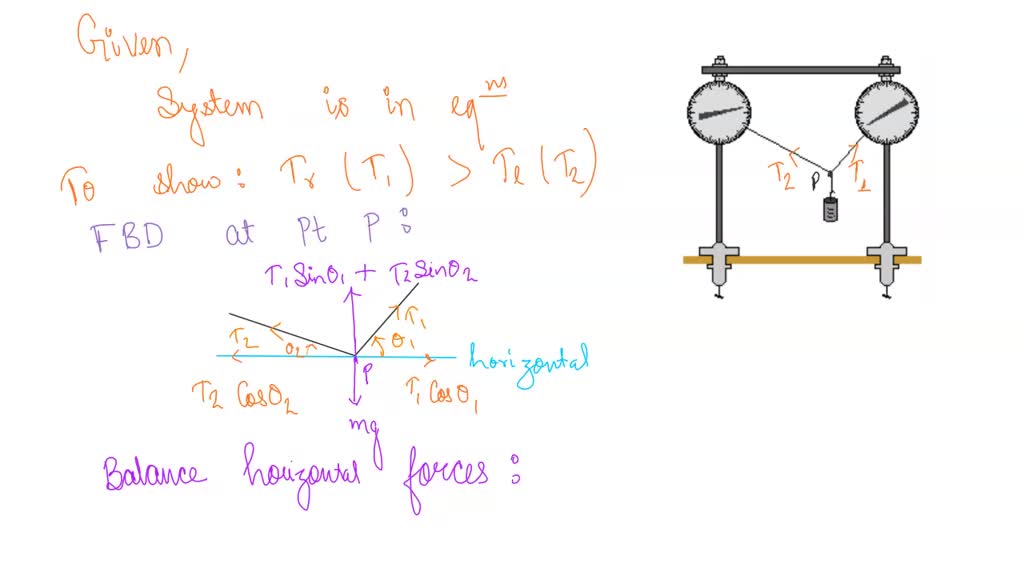 Given,
System is in eqm
To show: Tr (T1) > Tl (T2)
FBD at Pt P:
T1 Sinθ1 + T2 Sinθ2
T2 θ2 T1 θ1
horizontal
P
T2 Cosθ2 T1 Cosθ1
mg
Balance horizontal forces:
T2 P T1